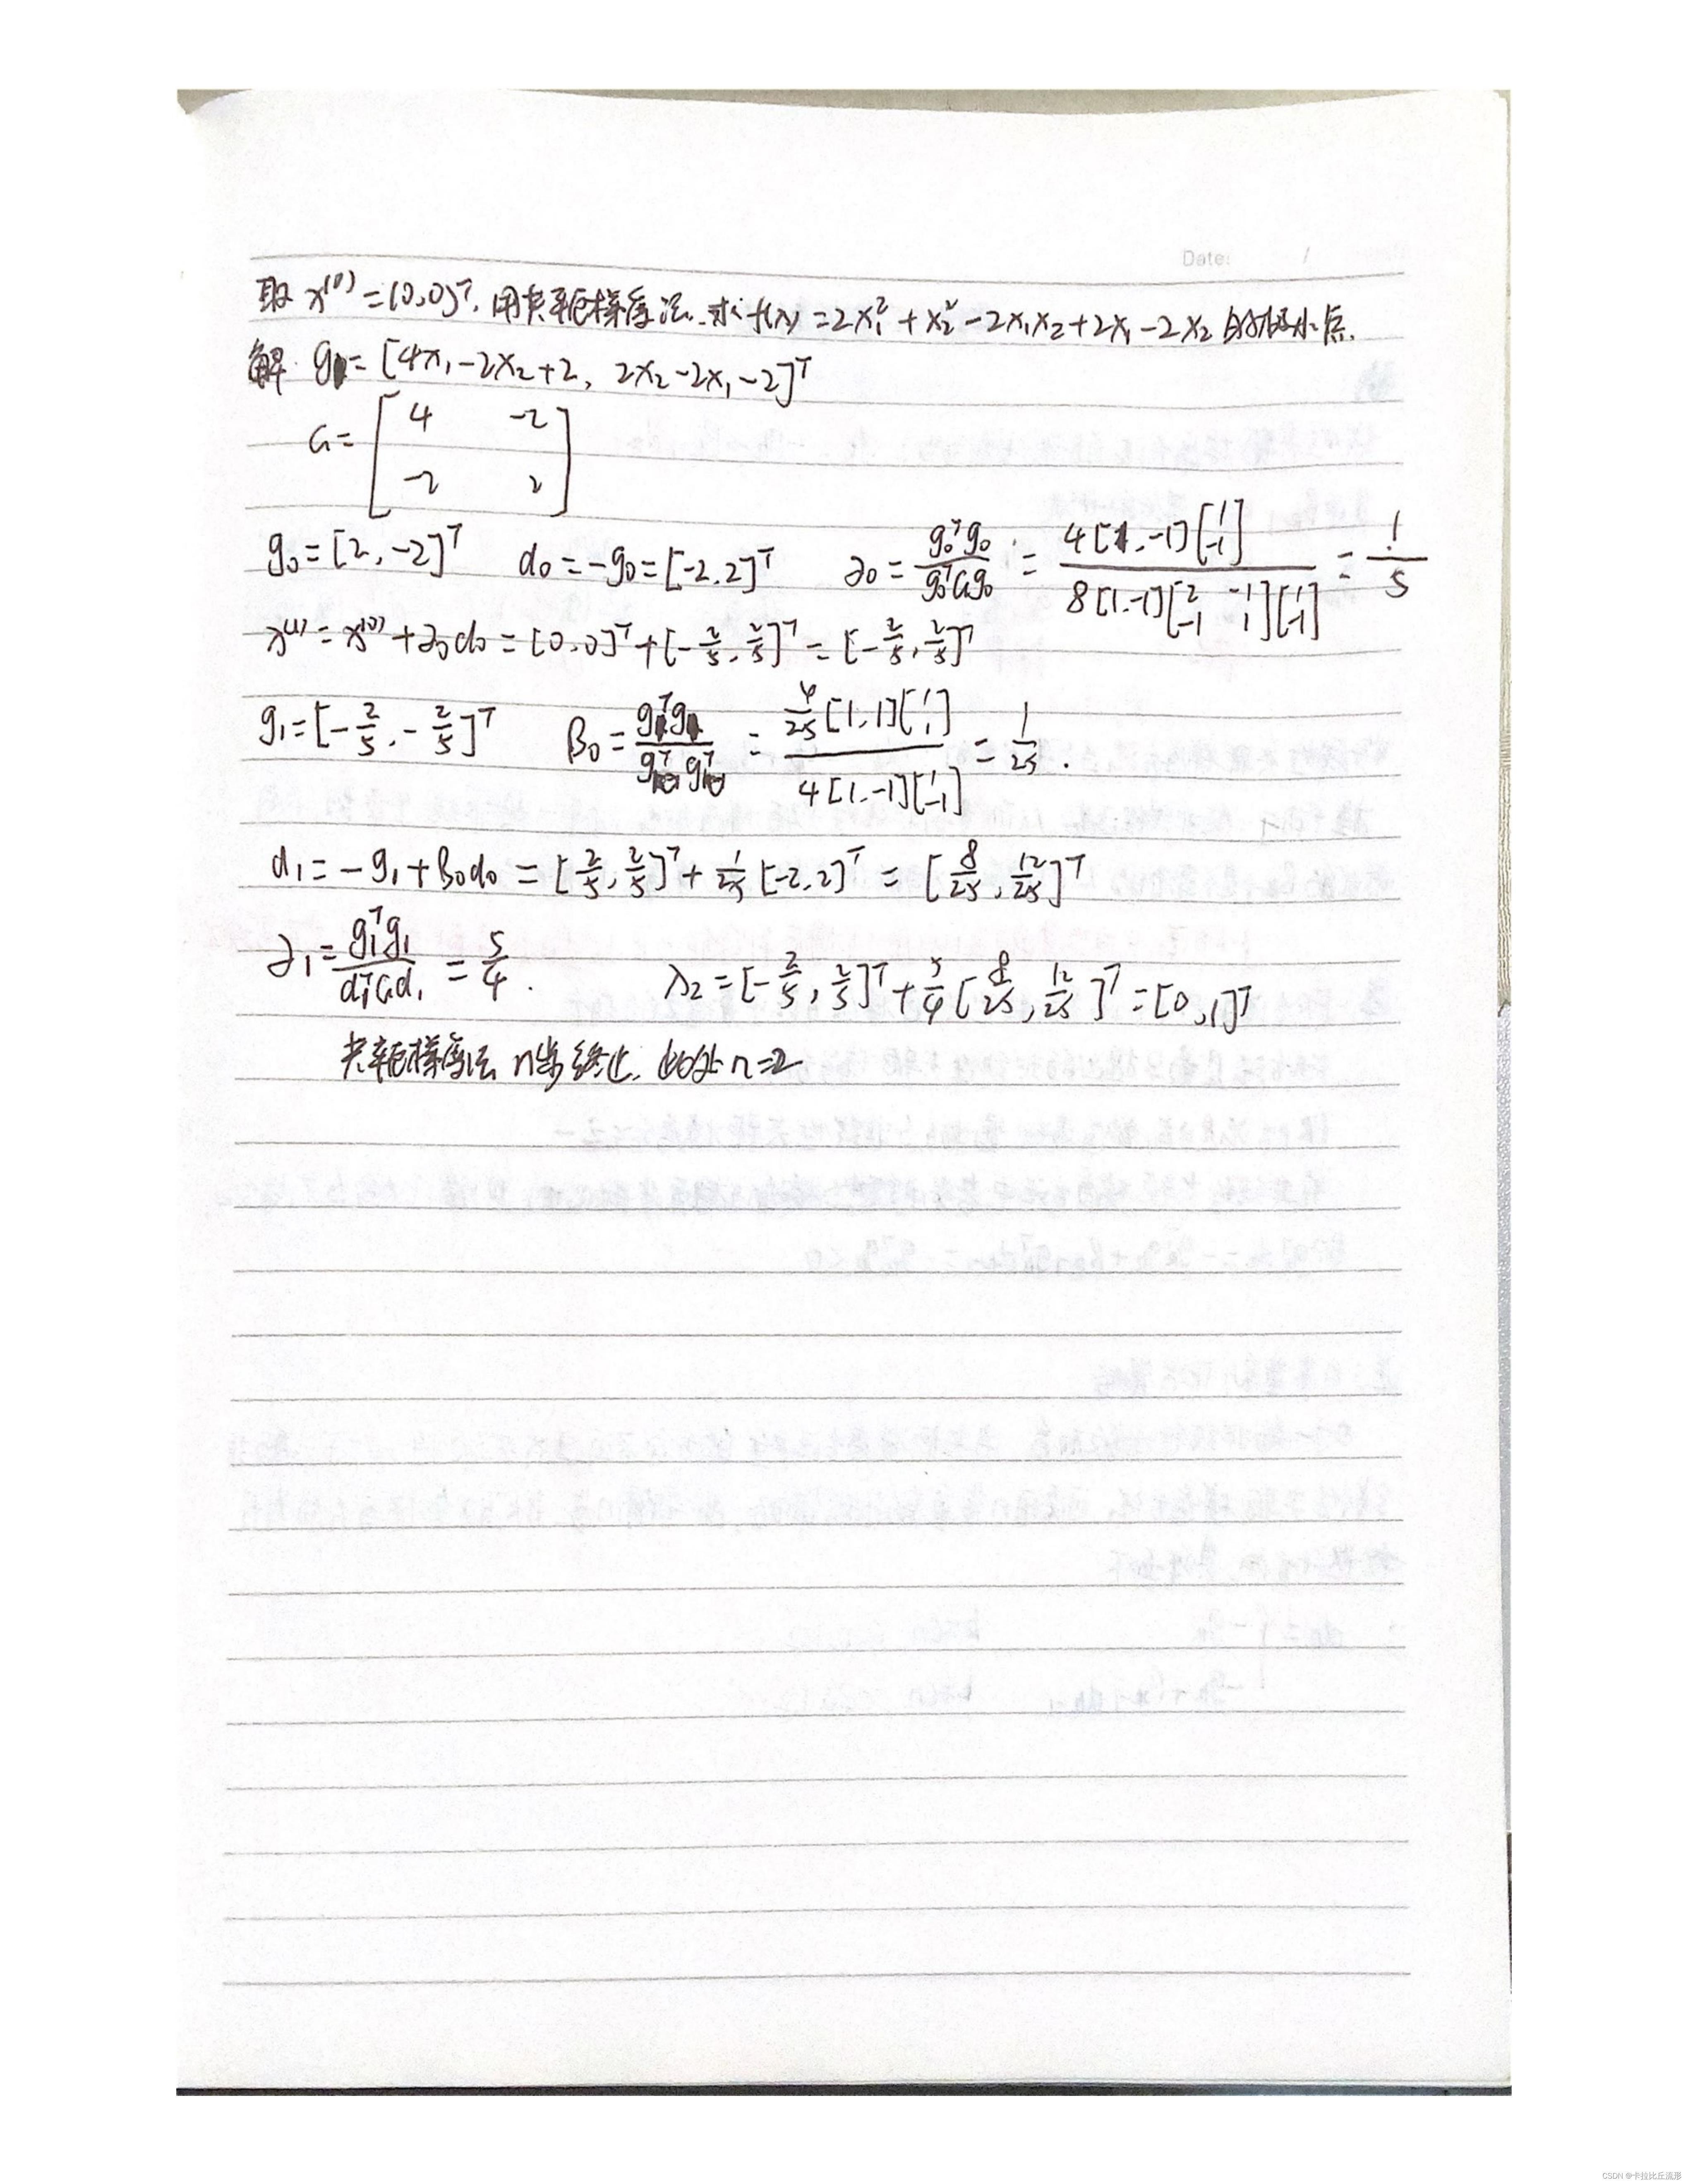 Date: /
取 x⁽⁰⁾ = (0,0)ᵀ, 用共轭梯度法求 f(x) = 2x₁² + x₂² - 2x₁x₂ + 2x₁ - 2x₂ 的极小点.
解: g = [4x₁ - 2x₂ + 2, 2x₂ - 2x₁ - 2]ᵀ
G = [4 -2
-2 2]
g₀ = [2, -2]ᵀ d₀ = -g₀ = [-2, 2]ᵀ ∂₀ = g₀ᵀg₀ / g₀ᵀGg₀ = 4[1, -1][1 -1] / 8[1, -1][2 -1 -1 1][1 -1] = 1/5
x⁽¹⁾ = x⁽⁰⁾ + ∂₀d₀ = [0,0]ᵀ + [-2/5, 2/5]ᵀ = [-2/5, 2/5]ᵀ
g₁ = [-2/5, -2/5]ᵀ β₀ = g₁ᵀg₁ / g₀ᵀg₀ = 4/25 [1, 1][1 1] / 4[1, -1][1 -1] = 1/25.
d₁ = -g₁ + β₀d₀ = [2/5, 2/5]ᵀ + 1/25 [-2, 2]ᵀ = [8/25, 12/25]ᵀ
∂₁ = g₁ᵀg₁ / d₁ᵀGd₁ = 5/4. x₂ = [-2/5, 2/5]ᵀ + 5/4 [8/25, 12/25]ᵀ = [0, 1]ᵀ
共轭梯度法 n步终止, 此处 n=2
CSDN @卡拉比丘流形